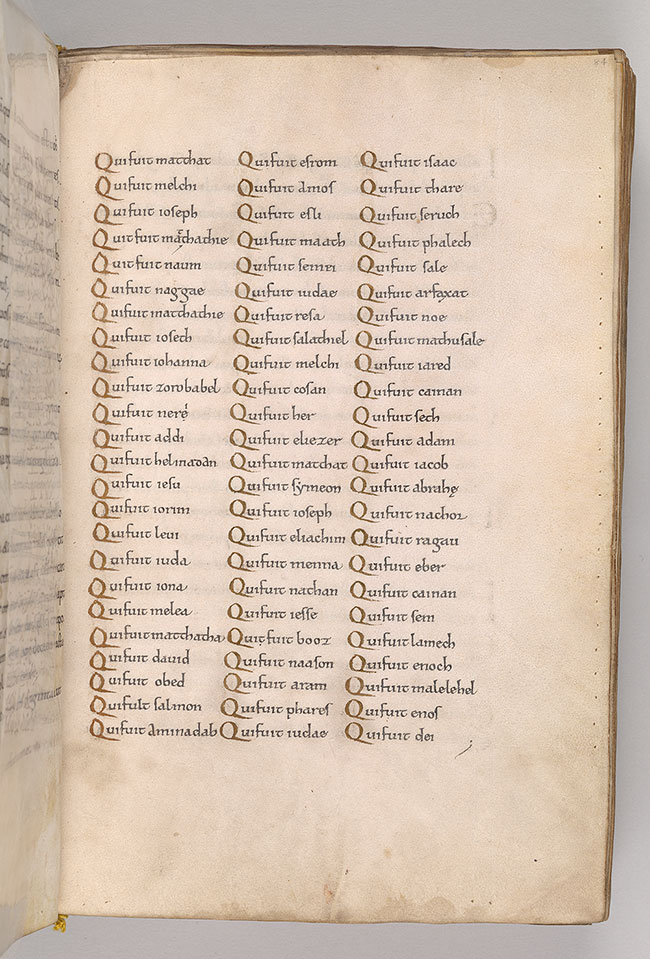 Quifuit matthat
Quifuit melchi
Quifuit ioseph
Quit fuit mathathie
Quit fuit naum
Quifuit naggae
Quifuit matthathie
Quifuit iosech
Quifuit iohanna
Quifuit zorobabel
Quifuit nerę
Quifuit addi
Quifuit helmadan
Quifuit iesu
Quifuit iorim
Quifuit leui
Quifuit iuda
Quifuit iona
Quifuit melea
Quifuit matthatha
Quifuit dauid
Quifuit obed
Quifuit salmon
Quifuit aminadab
Quifuit esrom
Quifuit amos
Quifuit esli
Quifuit maath
Quifuit semei
Quifuit iudae
Quifuit resa
Quifuit salathiel
Quifuit melchi
Quifuit cosan
Quifuit her
Quifuit eliezer
Quifuit matthat
Quifuit symeon
Quifuit ioseph
Quifuit eliachim
Quifuit menna
Quifuit nathan
Quifuit iesse
Quit fuit booz
Quifuit naason
Quifuit aram
Quifuit phares
Quifuit iudae
Quifuit isaac
Quifuit thare
Quifuit seruch
Quifuit phalech
Quifuit sale
Quifuit arfaxat
Quifuit noe
Quifuit mathusale
Quifuit iared
Quifuit cainan
Quifuit seth
Quifuit adam
Quifuit iacob
Quifuit abrahę
Quifuit nachor
Quifuit ragau
Quifuit eber
Quifuit cainan
Quifuit sem
Quifuit lamech
Quifuit enoch
Quifuit malelehel
Quifuit enos
Quifuit dei